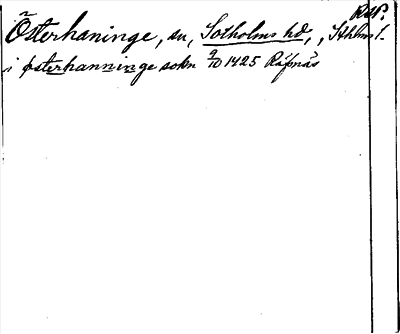 RAP.
Österhaninge, sn, Sotholms hd, Sthlms l.
i østerhanninge sokn 9/10 1425 Räfsnäs